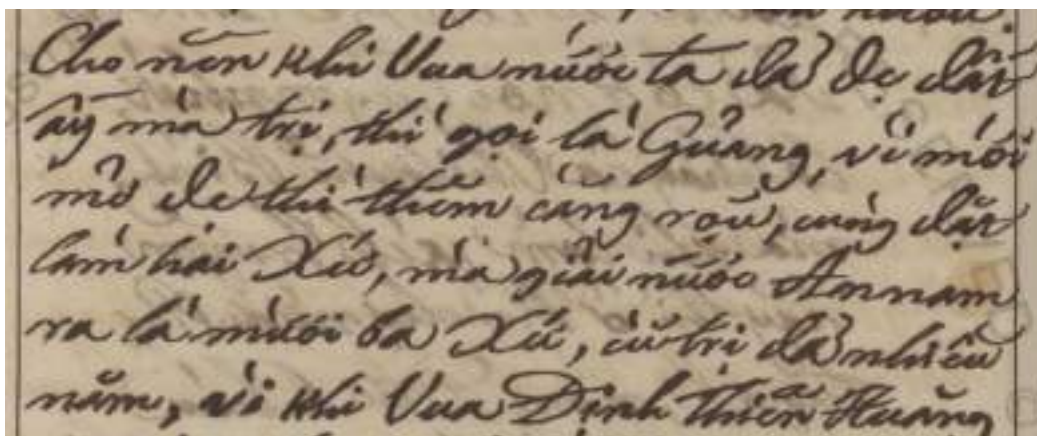 Cho nên khi Vua nước ta đã đẹ đất
ấy mà trị, thì gọi là Quảng, vì mới
mở đe thì thêm càng rộũ, cũng đặt
làm hai Xứ, mà giải nước Annam
ra là mười ba Xứ, cữ trị đã nhiều
năm, vì khi Vua Định thiên Huăng